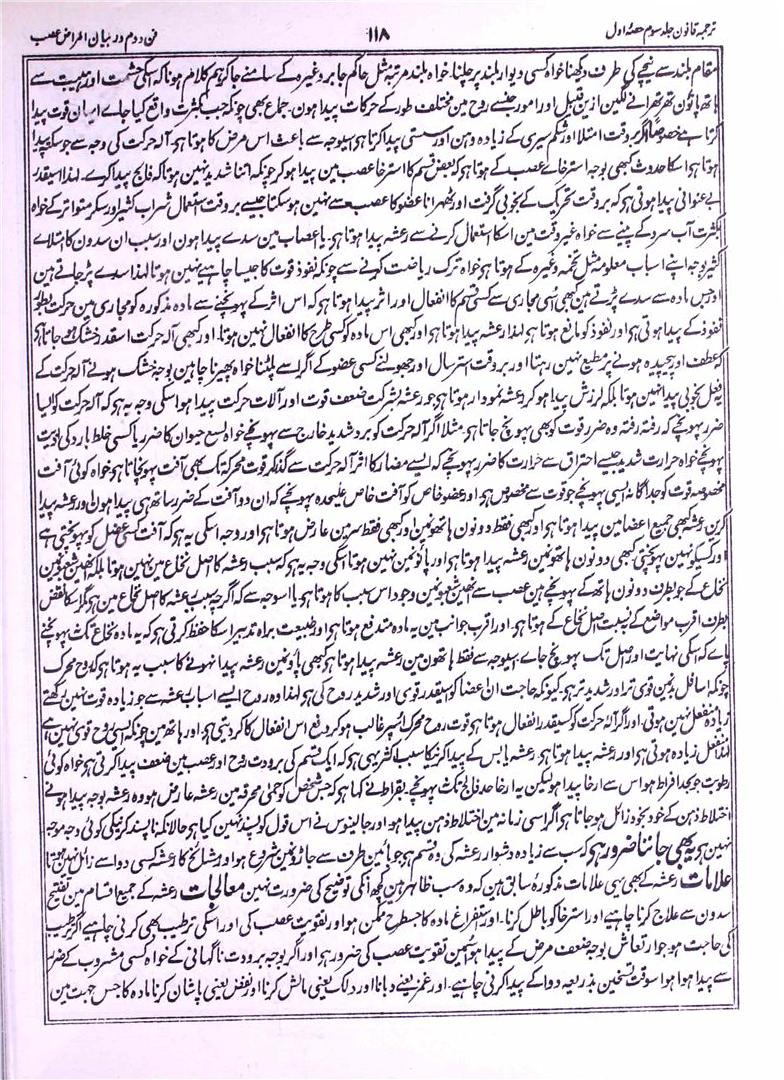 ترجمہ قانون جلد سوم حصۂ اول ۱۱۸ فن دوم در بیان امراض عصب
مقام بلند سے نیچے کی طرف دیکھنا خواہ کسی دیوار بلند پر چلنا۔ خواہ بلند مرتبہ مثل حاکم جابر وغیرہ کے سامنے جا کر ہم کلام ہونا کہ اسکی حشمت اور ہیبت سے
ہاتھ پاؤن تھرتھرانے لگین ازین قبیل اور امور جنسے روح مین مختلف طور کے حرکات پیدا ہون۔ جماع بھی چونکہ جب بکثرت واقع کیا جاے قوت پیدا
کرتا ہے خصوصاً اگر بروقت امتلا اور شکم سیری کے زیادہ وہن اور سستی پیدا کرتا ہے اسیوجہ سے باعث اس مرض کا ہوتا ہے۔ آلہ حرکت کی وجہ سے جو کچھ پیدا
ہوتا ہے اسکا حدوث کبھی بوجہ استرخاے عصب کے ہوتا ہے کہ بعض قسم کا استرخا عصب مین پیدا ہو کر چونکہ اتنا شدید نہین ہوتا کہ فالج پیدا کرے۔ لہذا اسیقدر
بے عنوانی پیدا ہوتی ہے کہ بروقت تحریک کے بخوبی گرفت اور ٹھہرانا عضو کا عصب سے نہین ہو سکتا جیسے بروقت استعمال شراب کثیر اور سکر متواتر کے خواہ
بکثرت آب سرد کے پینے سے خواہ غیر وقت مین اسکا استعمال کرنے سے رعشہ پیدا ہوتا ہے۔ یا اعصاب مین سدے پیدا ہون اور سبب ان سدون کا امتلاے
کثیر بوجہ اپنے اسباب معلومہ مثل تخمہ وغیرہ کے ہوتا ہے خواہ ترک ریاضت کرنے سے چونکہ نفوذ قوت کا جیسا چاہیے نہین ہوتا لہذا سدے پڑ جاتے ہین
اور جس مادہ سے سدے پڑتے ہین کبھی اُسی مجاری سے کسی قسم کا انفعال اور اثر پیدا ہوتا ہے کہ اس اثر کے پہونچنے سے مادہ مذکورہ کو مجاری مین حرکت بطور
نفوذ کے پیدا ہوتی ہے اور نفوذ کو مانع ہوتا ہے لہذا رعشہ پیدا ہوتا ہے اور کبھی اس مادہ کو کسی طرح کا انفعال نہین ہوتا۔ اور کبھی آلہ حرکت اسقدر خشک ہو جاتا ہے
کہ عطف اور پیچیدہ ہونے پر مطیع نہین رہتا اور بروقت استرسال اور چھوٹنے کسی عضو کے اگر اسے پلٹنا خواہ پھیرنا چاہین بوجہ خشک ہونے آلہ حرکت کے
یہ فعل بخوبی پیدا نہین ہوتا بلکہ لرزش پیدا ہو کر رعشہ نمودار ہوتا ہے۔ جو رعشہ بشرکت ضعف قوت اور آلات حرکت پیدا ہو اسکی وجہ یہ ہے کہ آلہ حرکت کو ایسا
ضرر پہونچے کہ رفتہ رفتہ وہ ضرر قوت کو بھی پہونچ جاتا ہے۔ مثلاً اگر آلہ حرکت کو برد شدید خارج سے پہونچے خواہ لسع حیوان کا ضرر یا کسی خلط بارد کی اذیت
پہونچے خواہ حرارت شدید جیسے احتراق سے حرارت کا ضرر پہونچے کہ ایسے مضار کا اثر آلہ حرکت سے گذر کر قوت محرکہ تک بھی آفت پہونچاتا ہے خواہ کوئی آفت
مخصوصہ قوت کو جداگانہ ایسی پہونچے جو قوت سے مخصوص ہے اور عضو خاص کو آفت خاص علیحدہ پہونچے کہ ان دو آفت کے ضرر ساتھ ہی پیدا ہون اور رعشہ پیدا
کرین رعشہ کبھی جمیع اعضا مین پیدا ہوتا ہے اور کبھی فقط دونون ہاتھونمین اور کبھی فقط سر مین عارض ہوتا ہے اور وجہ اسکی یہ ہے کہ آفت کسی عضل کو پہونچتی ہے
اور کسیکو نہین پہونچتی کبھی دونون ہاتھونمین رعشہ پیدا ہوتا ہے اور پاؤنمین نہین ہوتا اسکی وجہ یہ ہے کہ سبب رعشہ کا اصل نخاع مین نہین ہوتا بلکہ انھین شعبونمین
نخاع کے جو بطرف دونون ہاتھ کے پہونچے ہین عصب سے انھین شعبونمین وجود اس سبب کا ہوتا ہے یا اسوجہ سے کہ اگرچہ سبب رعشہ کا اصل نخاع مین ہے مگر اسکا نفض
بطرف اقرب مواضع کے بہ نسبت اصل نخاع کے ہوتا ہے۔ اور اقرب جوانب مین یہ مادہ مندفع ہوتا ہے اور طبیعت براہ تدبیر اسکا حفظ کرتی ہے کہ یہ مادہ نخاع تک پہونچنے
پاے کہ اسکی نہایت اور اصل تک پہونچ جاے اسیوجہ سے فقط ہاتھون مین رعشہ پیدا ہوتا ہے کبھی پاؤنمین رعشہ پیدا نہونے کا سبب یہ ہوتا ہے کہ روح محرک
چونکہ اسافل بدنمین قوی تر اور شدید تر ہے کیونکہ حاجت ان اعضا کو اسیقدر قوی اور شدید روح کی ہے لہذا وہ روح ایسے اسباب رعشہ سے جو زیادہ قوت نہین رکھتے
زیادہ منفعل نہین ہوتی اور اگر آلہ حرکت کو اسیقدر انفعال ہوتا ہے قوت روح محرکہ اُسپر غالب ہو کر دفع اس انفعال کا کر دیتی ہے۔ اور ہاتھ مین چونکہ ایسی روح قوی نہین ہے
لہذا منفعل زیادہ ہوتی ہے اور رعشہ پیدا ہوتا ہے۔ رعشہ یابس کے پیدا کرنیکا سبب اکثر یہی ہے کہ ایک قسم کی برودت روح اور عصب مین ضعف پیدا کرتی ہے خواہ کوئی
رطوبت جو بحد افراط ہو اس سے ارخا پیدا ہو لیکن یہ ارخا حد فالج تک نہ پہونچے۔ بقراط نے کہا ہے کہ جس شخص کو حمیٰ محرقہ مین رعشہ عارض ہو وہ رعشہ بوجہ پیدا ہونے
اختلاط ذہن کے خود بخود زائل ہو جاتا ہے اگر اسی زمانہ مین اختلاط ذہن پیدا ہو۔ اور جالینوس نے اس قول کو پسند نہین کیا ہے حالانکہ ناپسند کرنیکی کوئی وجہ موجہ
نہین ہے یہ بھی جاننا ضرور ہے کہ سب سے زیادہ دشوار رعشہ کی وہ قسم ہے جو بائین طرف سے جاڑونمین شروع ہو اور مشائخ کا رعشہ کسی دوا سے زائل نہین ہوتا
علامات رعشہ کے بھی یہی علامات مذکورۂ سابق ہین کہ وہ سب ظاہر ہین کچھ انکی توضیح کی ضرورت نہین معالجات رعشہ کے جمیع اقسام مین تفتیح
سدون سے علاج کرنا چاہیے اور استرخا کو باطل کرنا۔ اور استفراغ مادہ کا جسطرح ممکن ہو اور تقویت عصب کی اور اسکی ترطیب بھی کرنی چاہیے اگر ترطیب
کی حاجت ہو جو ارتعاش بوجہ ضعف مرض کے پیدا ہو اسمین تقویت عصب کی ضرور ہے اور اگر بوجہ برودت ناگہانی کے خواہ کسی مشروب کے ضرر
سے پیدا ہوا ہو اسوقت تسخین بذریعہ دوا کے پیدا کرنی چاہیے۔ اور غمز یعنے دبانا اور دلک یعنی مالش کرنا اور نفض یعنی پاشان کرنا مادہ کا جس جہت مین